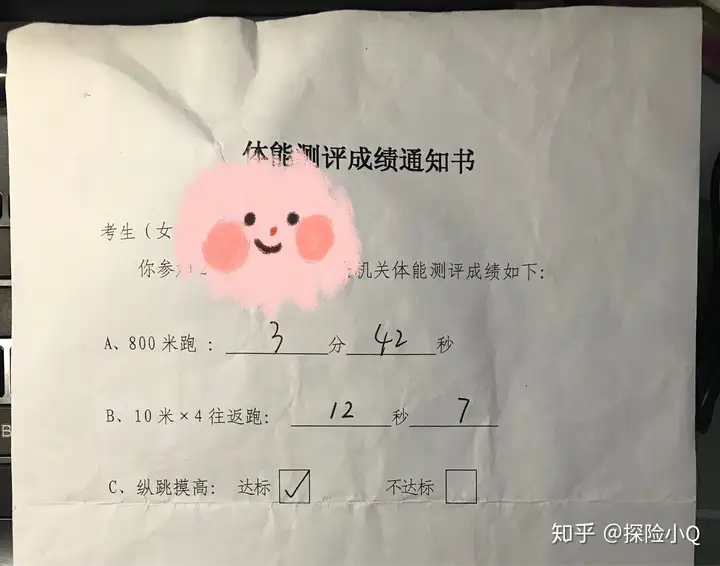 体能测评成绩通知书
考生（女
你参 机关体能测评成绩如下：
A、800 米跑 ： 3 分 42 秒
B、10 米×4 往返跑： 12 秒 7
C、纵跳摸高： 达标 ☑ 不达标 □
知乎 @探险小Q